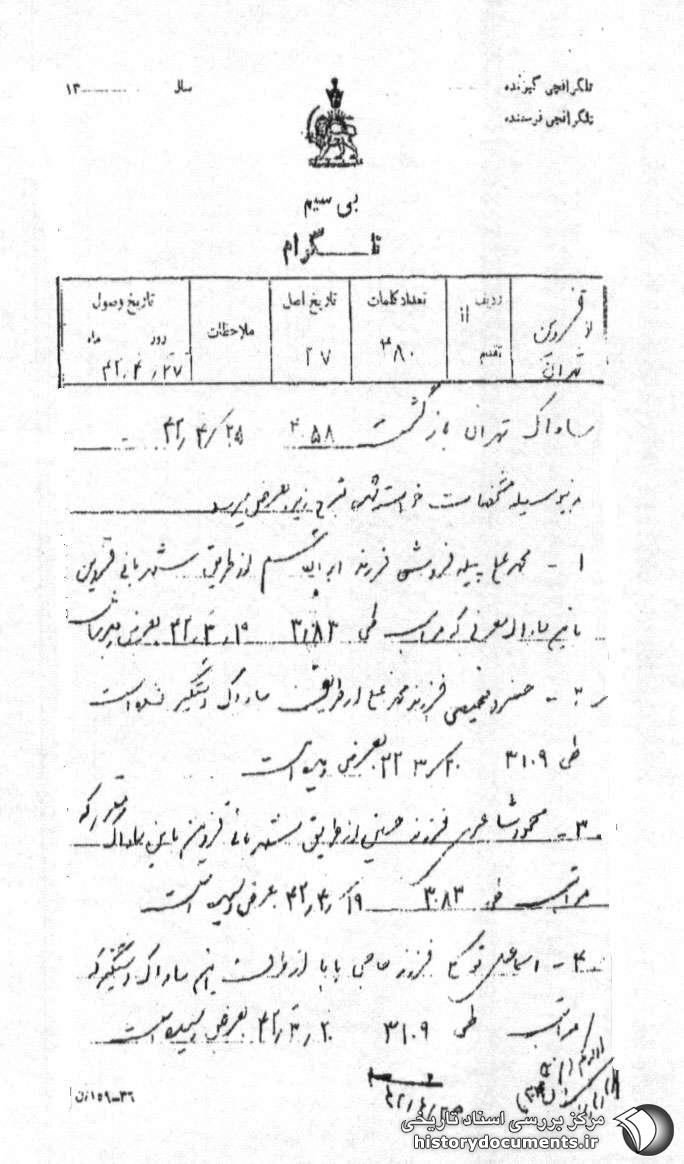 تلگرافچی گیرنده
سال ۱۳
تلگرافچی فرستنده
بی سیم
تلگرام
از قزوین تهران
ردیف از تقدیم
تعداد کلمات ۳۸۰
تاریخ اصل ۲۷
ملاحظات
تاریخ وصول روز ماه ۲۷/۴/۴۲
ساواک تهران بازگشت ۴۰۵۸ ۴۲/۴/۲۵
بدینوسیله مشخصات خواسته شده بشرح زیر بعرض میرسد
۱ - محمدعلی پیله فروش فرزند ابوالقاسم از طریق شهربانی قزوین
باین ساواک معرفی که مراتب طی ۳۰۸۳ ۴۲/۳/۱۹ بعرض
۲ - فرزند محمدعلی از طریق ساواک دستگیر شده است
طی ۳۱۰۹ ۴۲/۳/۲۰ بعرض رسیده است
۳ - محمود شاعری فرزند حسین از طریق شهربانی قزوین باین ساواک که
مراتب طی ۳۰۸۳ ۱۹ بعرض رسیده است
۴ - اسماعیل فرزند حاجی بابا از طرف این ساواک دستگیر که
مراتب طی ۳۱۰۹ ۴۲/۳/۲۰ بعرض رسیده است
۳۶-۱۵۹/ن
مرکز بررسی اسناد تاریخی
historydocuments.ir